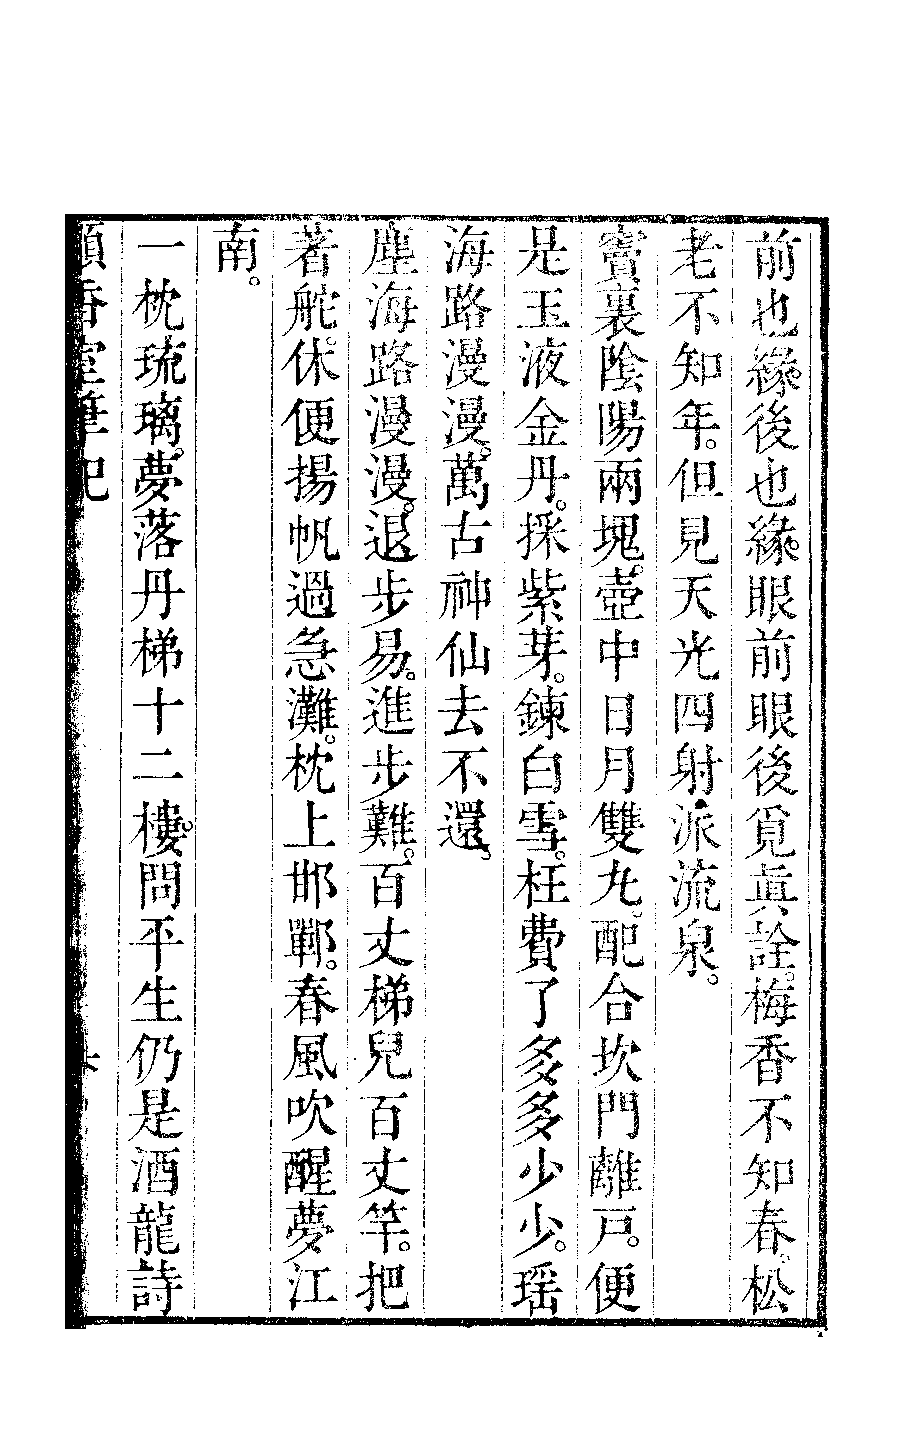 前也緣。後也緣。眼前眼後覓眞詮。梅香不知春。松
老不知年。但見天光四射派流泉。
竇裏陰陽兩塊。壺中日月雙九。配合坎門離戸。便
是玉液金丹。採紫芽。鍊白雪。枉費了多多少少。瑶
海路漫漫。萬古神仙去不還。
塵海路漫漫。退步易。進步難。百丈梯兒百丈竿。把
著舵。休便揚帆過急灘。枕上邯鄲。春風吹醒夢江
南。
一枕琉璃。夢落丹梯十二樓。問平生仍是酒龍詩
香室筆記